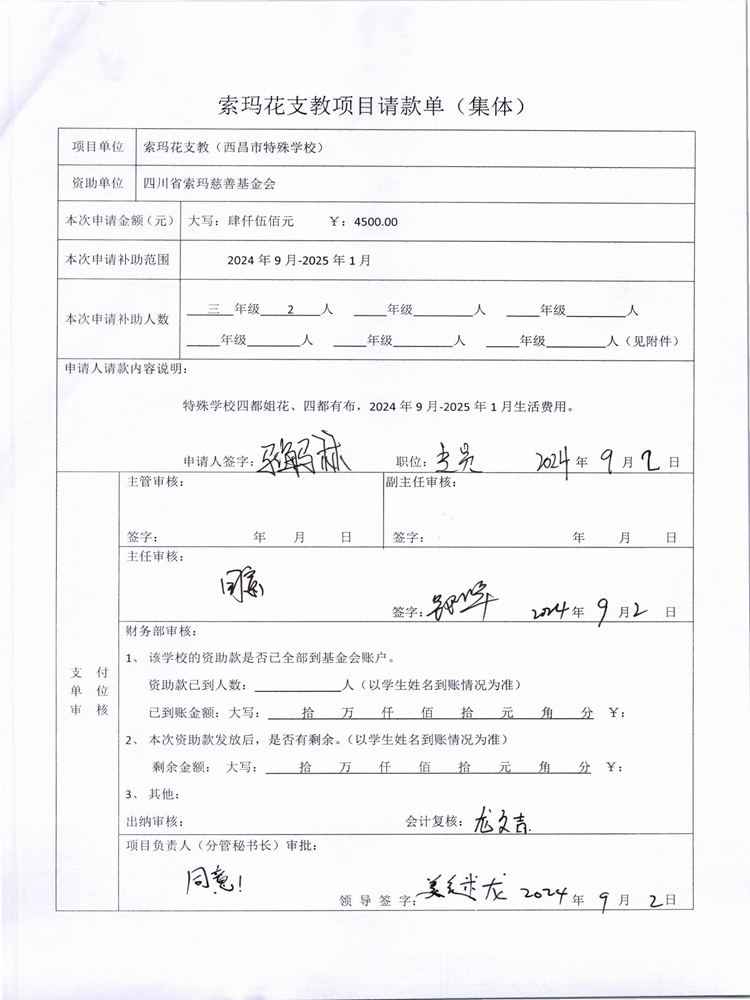 索玛花支教项目请款单（集体）
项目单位 索玛花支教（西昌市特殊学校）
资助单位 四川省索玛慈善基金会
本次申请金额（元） 大写：肆仟伍佰元 ￥：4500.00
本次申请补助范围 2024年9月-2025年1月
本次申请补助人数 三年级2人 年级 人 年级 人
年级 人 年级 人 年级 人（见附件）
申请人请款内容说明：
特殊学校四都姐花、四都有布，2024年9月-2025年1月生活费用。
申请人签字： 职位：专员 2024年9月2日
支付单位审核
主管审核： 副主任审核：
签字： 年 月 日 签字： 年 月 日
主任审核：
同意
签字： 2024年9月2日
财务部审核：
1、该学校的资助款是否已全部到基金会账户。
资助款已到人数： 人（以学生姓名到账情况为准）
已到账金额：大写： 拾 万 仟 佰 拾 元 角 分 ￥：
2、本次资助款发放后，是否有剩余。（以学生姓名到账情况为准）
剩余金额： 大写： 拾 万 仟 佰 拾 元 角 分 ￥：
3、其他：
出纳审核： 会计复核：龙文吉
项目负责人（分管秘书长）审批：
同意！
领导签字： 2024年9月2日